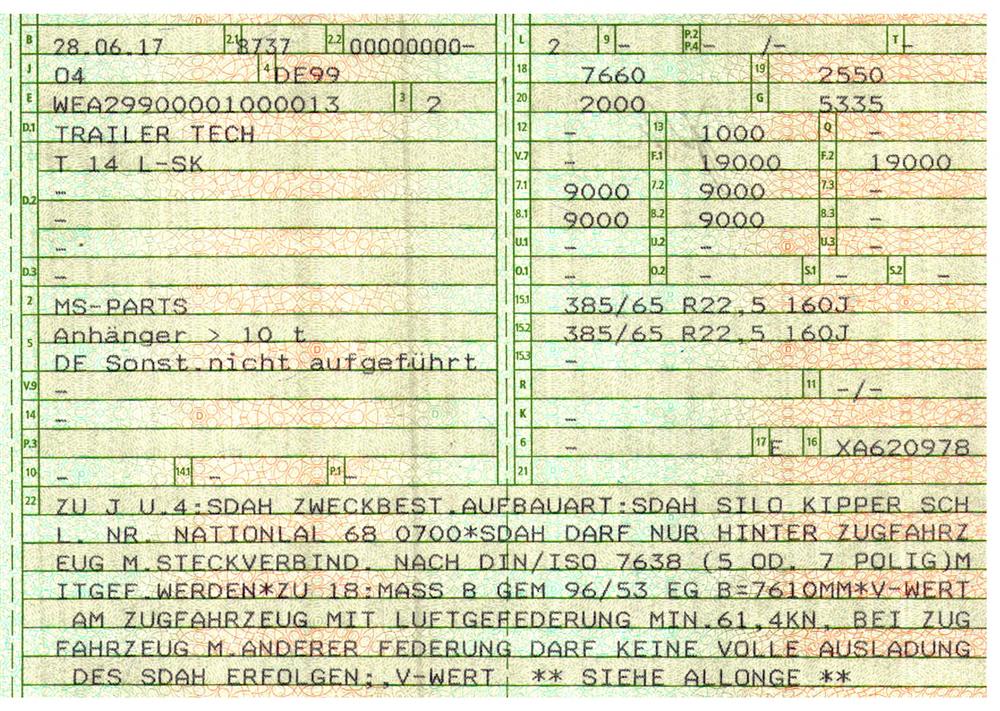 B 28.06.17 2.1 8737 2.2 00000000-
J 04 4 DE99
E WEA29900001000013 3 2
D.1 TRAILER TECH
T 14 L-SK
D.2 –
–
–
D.3 –
2 MS-PARTS
5 Anhänger > 10 t
DE Sonst.nicht aufgeführt
V.9 –
14 –
P.3
10 – 14.1 – P.1 –
L 2 9 – P.2 P.4 – /– T –
18 7660 19 2550
20 2000 G 5335
12 – 13 1000 Q –
V.7 – F.1 19000 F.2 19000
7.1 9000 7.2 9000 7.3 –
8.1 9000 8.2 9000 8.3 –
U.1 – U.2 – U.3 –
O.1 – O.2 – S.1 – S.2 –
15.1 385/65 R22,5 160J
15.2 385/65 R22,5 160J
15.3 –
R 11 –/–
K –
6 – 17 E 16 XA620978
21
22 ZU J U.4:SDAH ZWECKBEST.AUFBAUART:SDAH SILO KIPPER SCH
L. NR. NATIONLAL 68 0700*SDAH DARF NUR HINTER ZUGFAHRZ
EUG M.STECKVERBIND. NACH DIN/ISO 7638 (5 OD. 7 POLIG)M
ITGEF.WERDEN*ZU 18:MASS B GEM 96/53 EG B=7610MM*V-WERT
AM ZUGFAHRZEUG MIT LUFTGEFEDERUNG MIN.61,4KN, BEI ZUG
FAHRZEUG M.ANDERER FEDERUNG DARF KEINE VOLLE AUSLADUNG
DES SDAH ERFOLGEN;,V-WERT ** SIEHE ALLONGE **